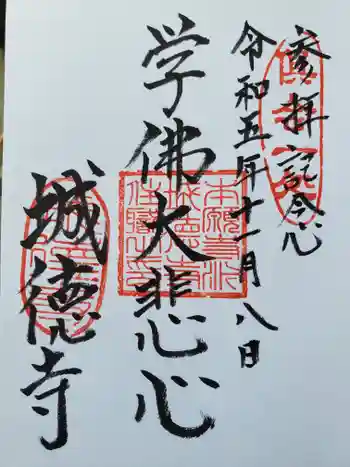 参拝記念
令和五年十一月八日
学佛大悲心
城德寺